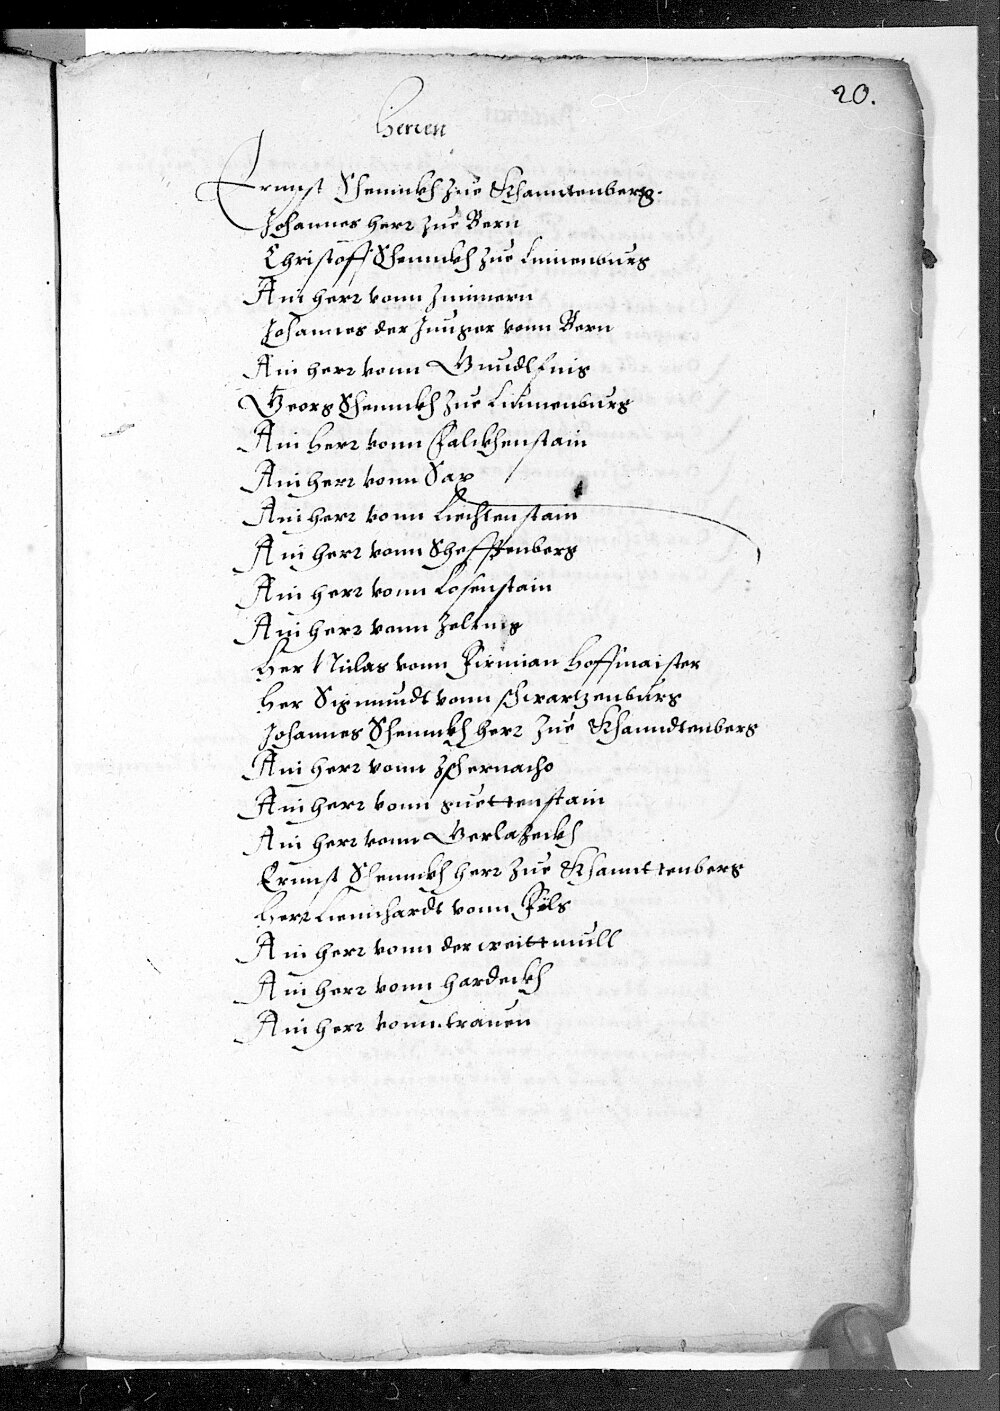 20.
Herren
Ernnst Shennckh zue Khanntenberg.
Johannes herr zue Bern
Christoff Shennckh zue Limenburg
Ain herr vonn Zimmern
Johannes der Junger vonn Bern
Ain herr vonn Gundlfing
Georg Shennckh zue Limmenburg
Ain herr vonn Falckhenstain
Ain herr vonn Sax
Ain herr vonn Liechtenstain
Ain herr vonn Sheffttenberg
Ain herr vonn Losenstain
Ain herr vonn Zelking
Her Niclas vonn Firmian hoffmaister
Her Sigmundt vonn schwartzenburg
Johannes Shennckh herr zue Khanndtenberg
Ain herr vonn Zschernacho
Ain herr vonn guettenstain
Ain herr vonn Gerlaßeckh
Ernnst Shennckh herr zue Khannttenberg
Herr Lienhardt vonn Fils
Ain herr vonn der weittmull
Ain herr vonn hardeckh
Ain herr vonn trauen